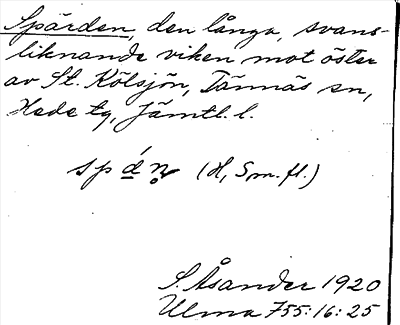 Spärden, den långa, svans-
liknande viken mot öster
av St. Kölsjön, Tännäs sn,
Hede tg, Jämtl. l.
(H, S m. fl.)
S. Åsander 1920
Ulma 755:16:25